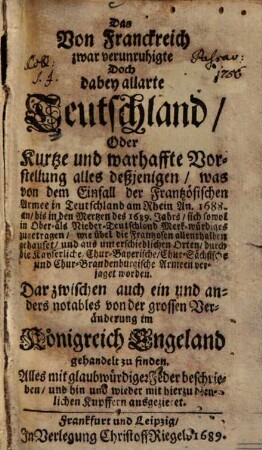 Das
Von Franckreich
zwar verunruhigte
Doch
dabey allarte
Teutschland/
Oder
Kurtze und warhaffte Vor-
stellung alles deßjenigen/ was
von dem Einfall der Frantzösischen
Armee in Teutschland am Rhein An. 1688.
an/ bis in den Mertzen des 1689. Jahrs/ sich sowol
in Ober-als Nieder-Teutschland Merk-würdiges
zugetragen/ wie übel die Franzosen allenthalben
gehauset/ und aus unterschiedlichen Orten/ durch
die Kayserliche/ Chur-Bayerische/ Chur-Sächsische
und Chur-Brandenburgische Armeen ver-
jaget worden.
Dar zwischen auch ein und an-
ders notables von der grossen Ver-
änderung im
Königreich Engeland
gehandelt zu finden.
Alles mit glaubwürdiger Feder beschrie-
ben/ und hin und wieder mit hierzu dien-
lichen Kupffern ausgezieret.
Frankfurt und Leipzig/
In Verlegung Christoff Riegels/ 1689.